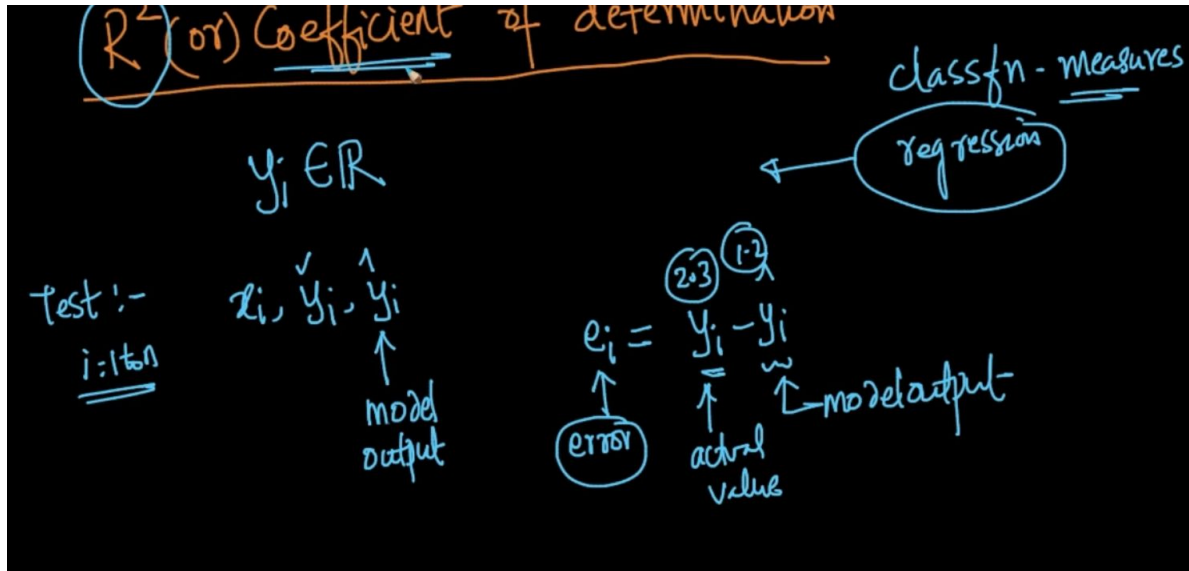 R² (or) Coefficient of determination
classfn - measures
regression
yᵢ ∈ ℝ
Test :- xᵢ, yᵢ, ŷᵢ
i=1 to n
model
output
2.3 1.2
eᵢ = yᵢ - ŷᵢ
error
actual
value
model output